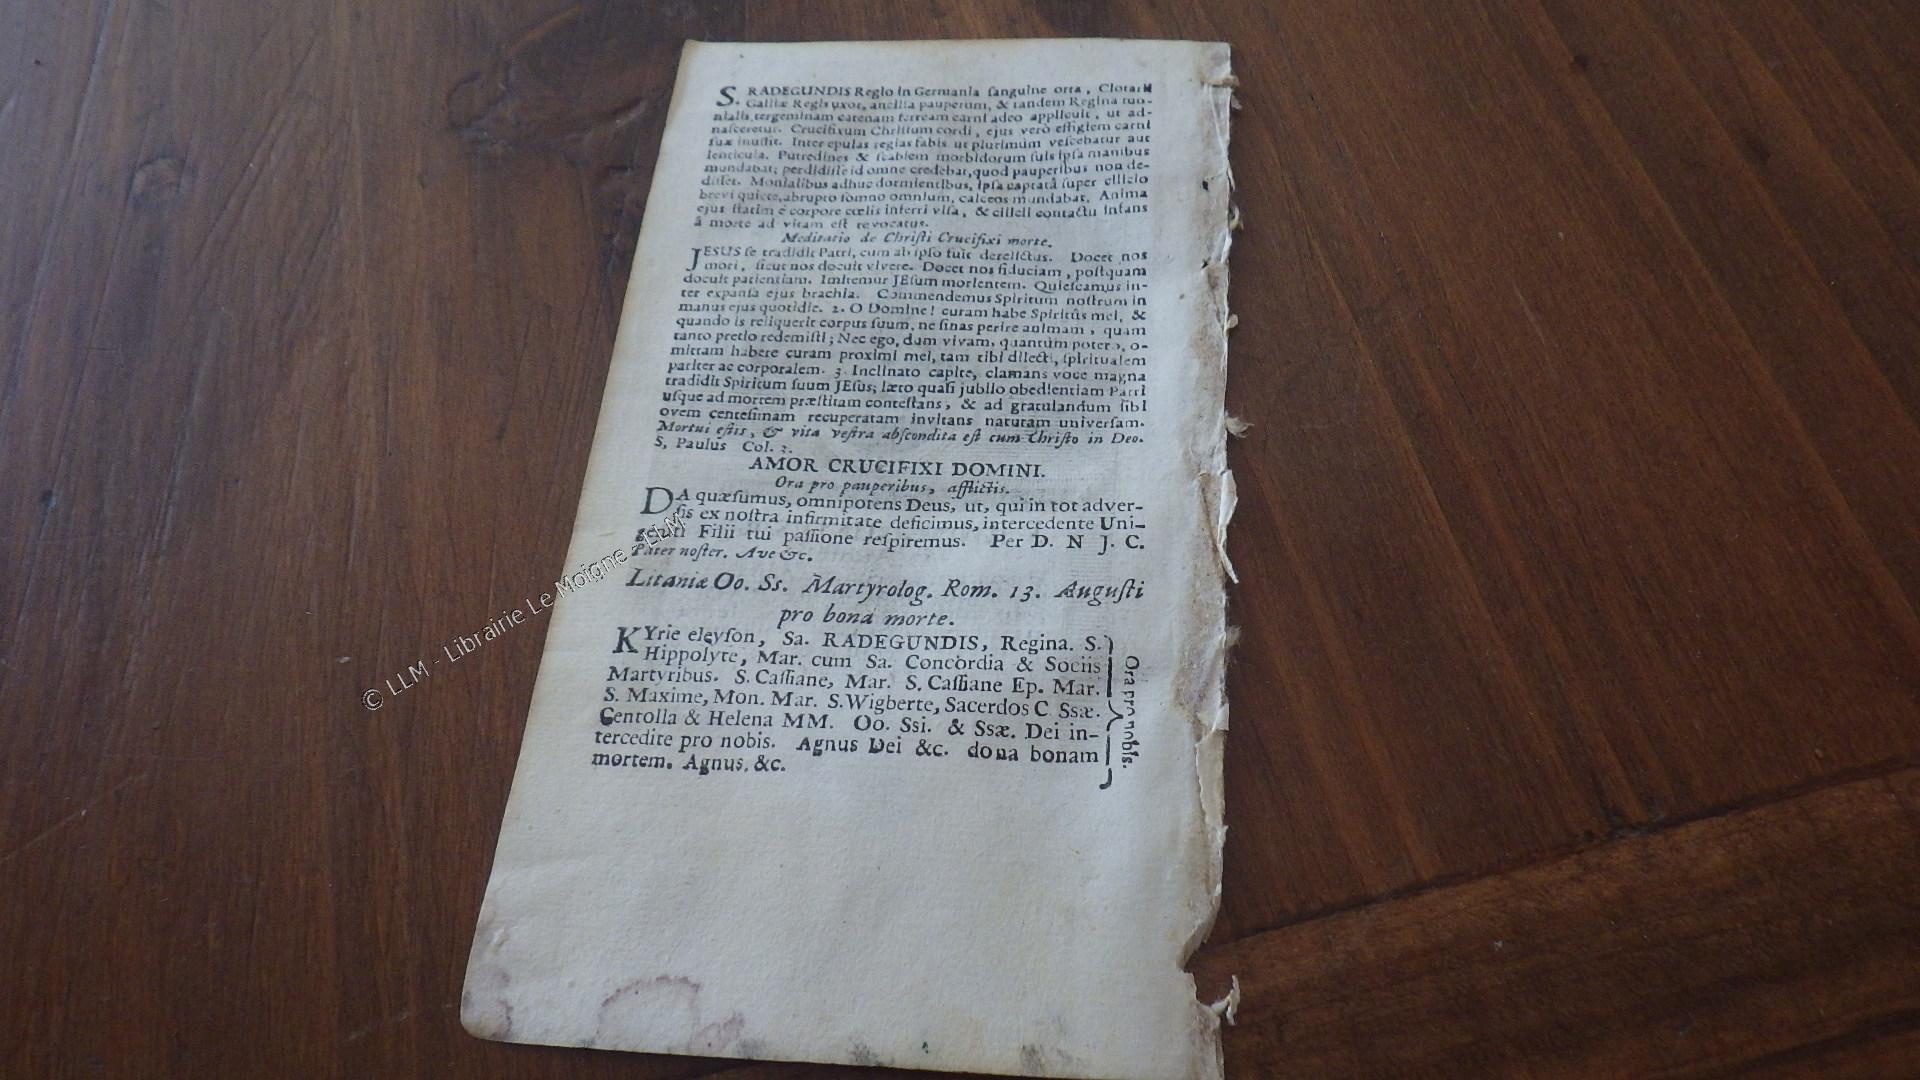 S. RADEGUNDIS Regio in Germania sanguine orta, Clotarii
Galliæ Regis uxor, ancilla pauperum, & tandem Regina mo-
nialis, tergeminam catenam ferream carni adeo applicuit, ut ad-
nasceretur. Crucifixum Christum cordi, ejus verò effigiem carni
suæ inussit. Inter epulas regias fabis ut plurimùm vescebatur aut
lenticula. Putredines & scabiem morbidorum suis ipsa manibus
mundabat; perdidisse id omne credebat, quod pauperibus non de-
disset. Monialibus adhuc dormientibus, ipsa captatâ super cilicio
brevi quiete, abrupto somno omnium, calceos mundabat. Anima
ejus statim è corpore cœlis inferri visa, & cilicii contactu infans
à morte ad vitam est revocatus.
Meditatio de Christi Crucifixi morte.
JESUS se tradidit Patri, cum ab ipso fuit derelictus. Docet nos
mori, sicut nos docuit vivere. Docet nos fiduciam, postquam
docuit patientiam. Imitemur JEsum morientem. Quiescamus in-
ter expansa ejus brachia. Commendemus Spiritum nostrum in
manus ejus quotidie. 2. O Domine! curam habe Spiritûs mei, &
quando is reliquerit corpus suum, ne sinas perire animam, quam
tanto pretio redemisti; Nec ego, dum vivam, quantùm potero, o-
mittam habere curam proximi mei, tam tibi dilecti, spiritualem
pariter ac corporalem. 3. Inclinato capite, clamans voce magna
tradidit Spiritum suum JEsus; læto quasi jubilo obedientiam Patri
usque ad mortem præstitam contestans, & ad gratulandum sibi
ovem centesimam recuperatam invitans naturam universam.
Mortui estis, & vita vestra abscondita est cum Christo in Deo.
S. Paulus Col. 3.
AMOR CRUCIFIXI DOMINI.
Ora pro pauperibus, afflictis.
DA quæsumus, omnipotens Deus, ut, qui in tot adver-
sis ex nostra infirmitate deficimus, intercedente Uni-
geniti Filii tui passione respiremus. Per D. N J. C.
Pater noster. Ave &c.
Litaniæ Oo. Ss. Martyrolog. Rom. 13. Augusti
pro bona morte.
KYrie eleyson, Sa. RADEGUNDIS, Regina. S.
Hippolyte, Mar. cum Sa. Concordia & Sociis
Martyribus. S. Cassiane, Mar. S. Cassiane Ep. Mar.
S. Maxime, Mon. Mar. S. Wigberte, Sacerdos C. Ssæ.
Centolla & Helena MM. Oo. Ssi. & Ssæ. Dei in-
tercedite pro nobis. Agnus Dei &c. dona bonam
mortem. Agnus. &c.
Ora pro nobis.
© LLM - Librairie Le Moigne - LLM